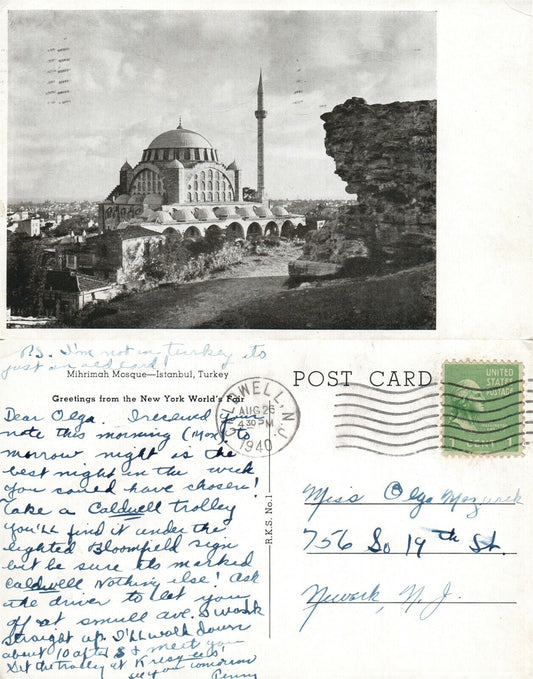 P.S. I'm not in turkey its
just an old card!
Mihrimah Mosque—Istanbul, Turkey
Greetings from the New York World's Fair
POST CARD
CALDWELL, N.J.
AUG 26
4 30 PM
1940
UNITED
STATES
POSTAGE
1 CENT 1
R.K.S. No.1
Dear Olga. I received your
note this morning (Mon) to
morrow night is the
best night in the week
you could have chosen!
Take a Caldwell trolley
you'll find it under the
lighted Bloomfield sign
but be sure its marked
Caldwell Nothing else! Ask
the driver to let you
off at smull ave. I work
straight up. I'll walk down
about 10 after 5 & meet you
Get the trolley at Kresges
see you tomorrow
Penny
Miss Olga Mazurek
756 So 19th St.
Newark, N. J.